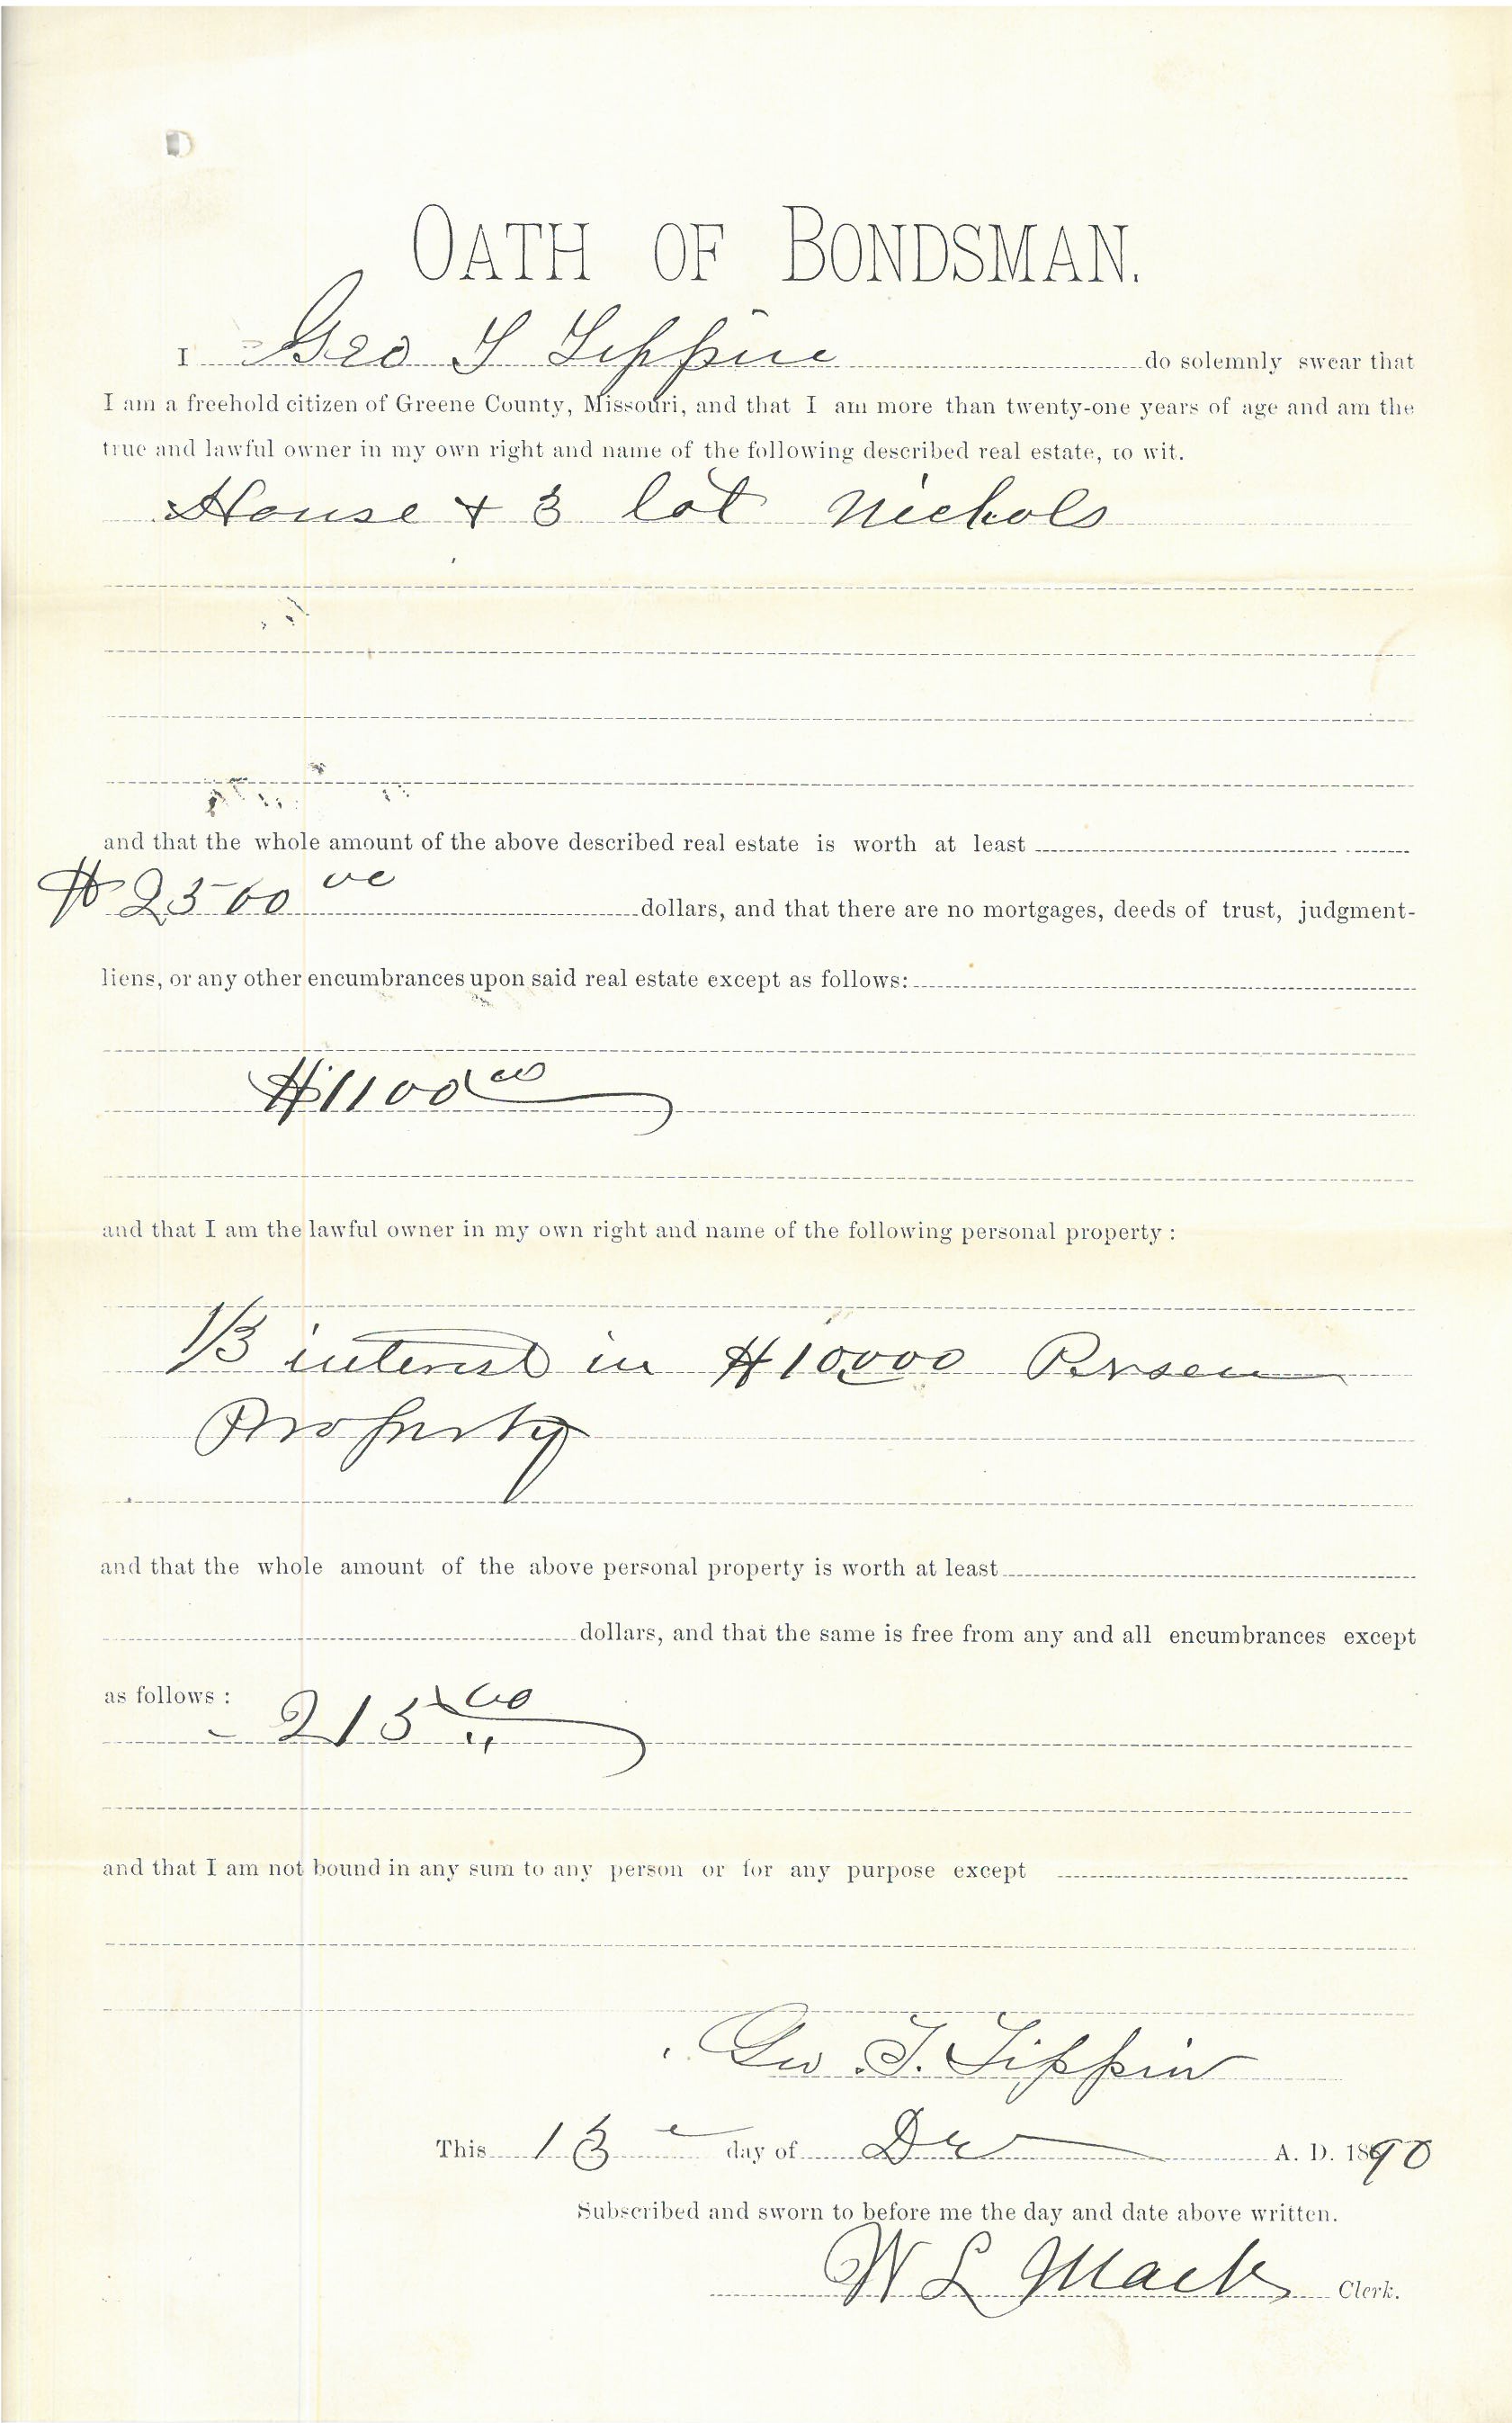 OATH OF BONDSMAN.
I Geo T Tippin do solemnly swear that
I am a freehold citizen of Greene County, Missouri, and that I am more than twenty-one years of age and am the
true and lawful owner in my own right and name of the following described real estate, to wit.
House + 3 lot Nichols
and that the whole amount of the above described real estate is worth at least
$2500 00 dollars, and that there are no mortgages, deeds of trust, judgment-
liens, or any other encumbrances upon said real estate except as follows:
$1100 00
and that I am the lawful owner in my own right and name of the following personal property :
1/3 interest in $10,000 Person
Property
and that the whole amount of the above personal property is worth at least
dollars, and that the same is free from any and all encumbrances except
as follows :
215 00
and that I am not bound in any sum to any person or for any purpose except
Geo T. Tippin
This 13 day of Dec A. D. 1890
Subscribed and sworn to before me the day and date above written.
W L Mack Clerk.